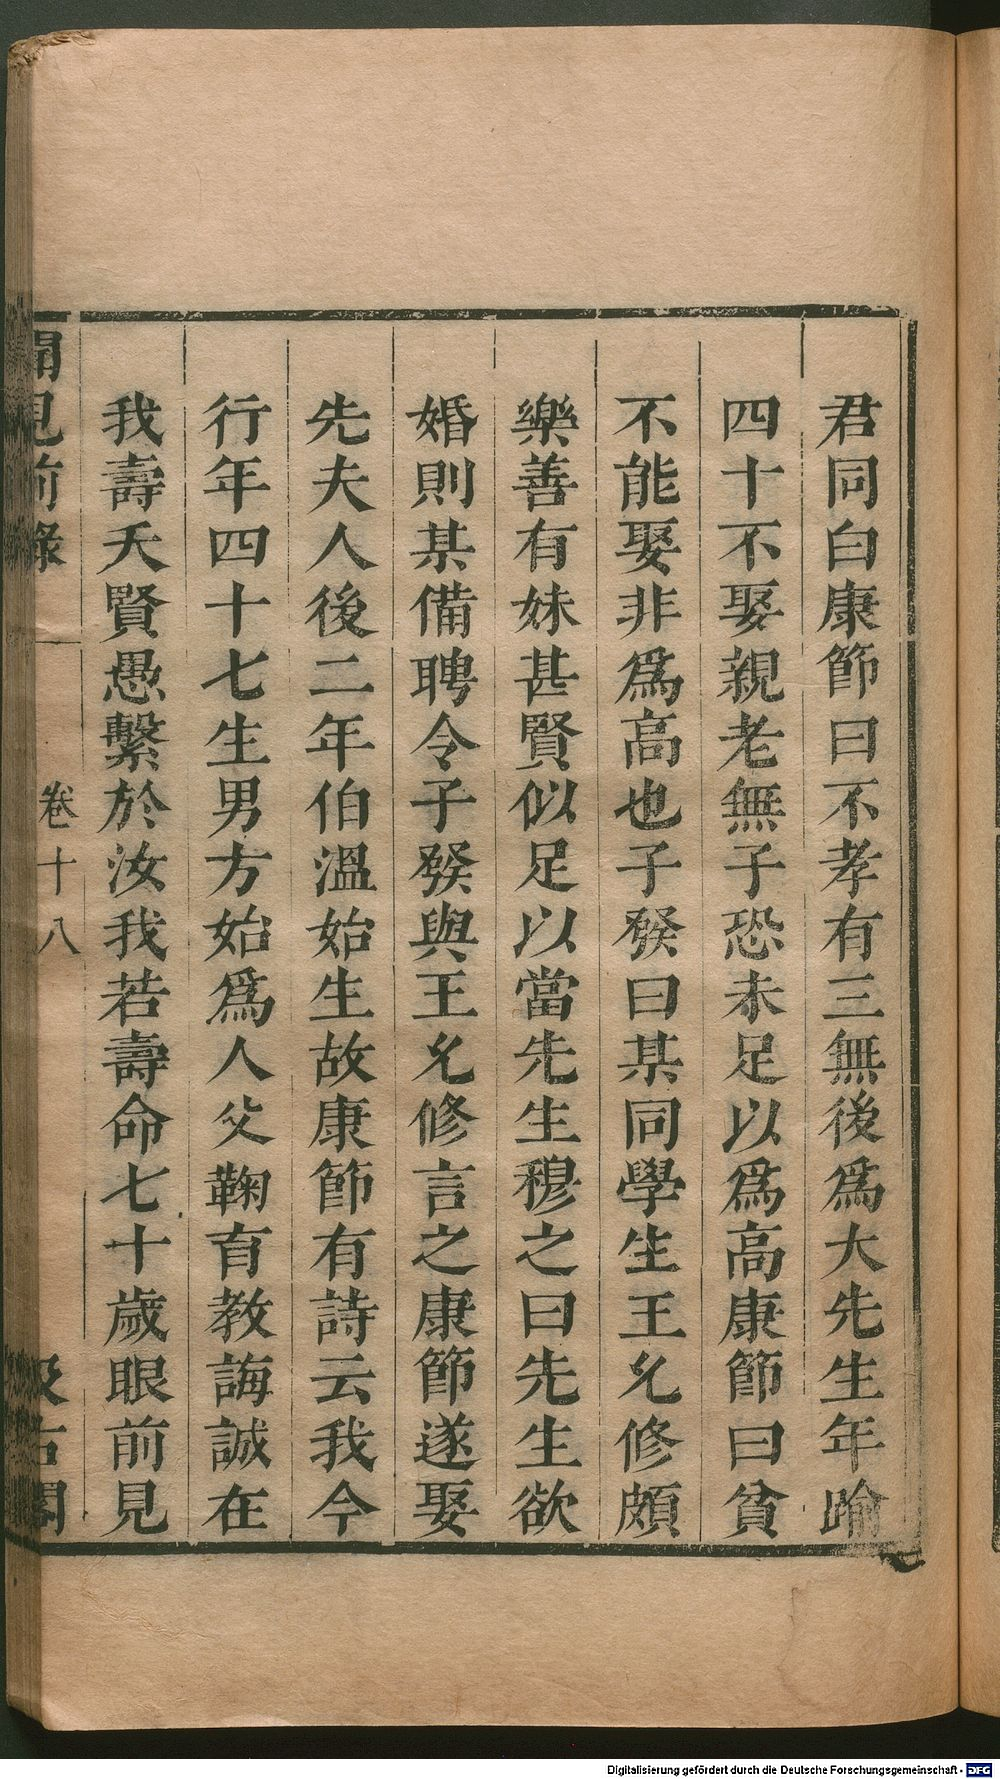 君同白康節曰不孝有三無後爲大先生年踰
四十不娶親老無子恐未足以爲高康節曰貧
不能娶非爲高也子發曰某同學生王允修頗
樂善有妹甚賢似足以當先生穆之曰先生欲
婚則某備聘令子發與王允修言之康節遂娶
先夫人後二年伯溫始生故康節有詩云我今
行年四十七生男方始爲人父鞠育教誨誠在
我壽夭賢愚繫於汝我若壽命七十歲眼前見
聞見前錄
卷十八
汲古閣
Digitalisierung gefördert durch die Deutsche Forschungsgemeinschaft - DFG